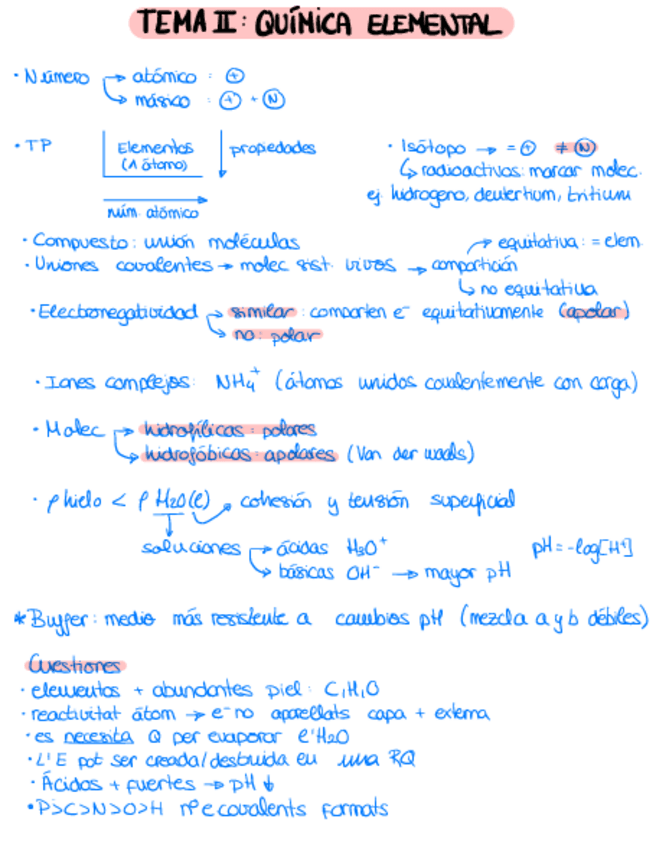 TEMA II: QUÍMICA ELEMENTAL
· Número → atómico : ⊕
→ másico : ⊕ + Ⓝ
· TP
Elementos
(1 átomo)
propiedades
núm. atómico
· Isótopo → = ⊕ ≠ Ⓝ
↳ radioactivos: marcar molec.
ej. hidrogeno, deutertium, tritium
· Compuesto: unión moléculas
· Uniones covalentes → molec sist. vivos → compartición
→ equitativa: = elem.
↳ no equitativa
· Electronegatividad → similar: comparten e⁻ equitativamente (apolar)
→ no: polar
· Iones complejos: NH₄⁺ (átomos unidos covalentemente con carga)
· Molec → hidrofílicas: polares
→ hidrofóbicas: apolares (Van der waals)
· ρ hielo < ρ H₂O(l) → cohesión y tensión superficial
soluciones → ácidas H₃O⁺
→ básicas OH⁻ → mayor pH
pH = -log[H⁺]
* Buffer: medio más resistente a cambios pH (mezcla a y b débiles)
Cuestiones
· elementos + abundantes piel: C, H, O
· reactivitat àtom → e⁻ no aparellats capa + externa
· es necesita Q per evaporar l'H₂O
· L'E pot ser creada/destruida en una RQ
· Ácidos + fuertes → pH ↓
· P>C>N>O>H nº e covalents formats